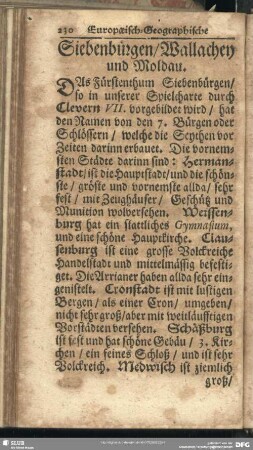 230 Europæisch-Geographische
Siebenbürgen/ Wallachey
und Moldau.
DAs Fürstenthum Siebenbürgen/
so in unserer Spielcharte durch
Clevern VII. vorgebildet wird / hat
den Namen von den 7. Bürgen oder
Schlössern / welche die Scythen vor
Zeiten darinn erbauet. Die vornem-
sten Städte darinn sind: Herman-
stadt/ ist die Hauptstadt/ und die schön-
ste / gröste und vornemste allda/ sehr
fest / mit Zeughäuser/ Geschütz und
Munition wolversehen. Weissen-
burg hat ein stattliches Gymnasium,
und eine schöne Hauptkirche. Clau-
senburg ist eine grosse Volckreiche
Handelstadt und mittelmässig befesti-
get. Die Arrianer haben allda sehr ein-
genistelt. Cronstadt ist mit lustigen
Bergen/ als einer Cron/ umgeben/
nicht sehr groß/ aber mit weitläufftigen
Vorstädten versehen. Schäßburg
ist fest und hat schöne Gebäu/ 3. Kir-
chen / ein feines Schloß / und ist sehr
Volckreich. Medwisch ist ziemlich
groß/
SLUB
DFG